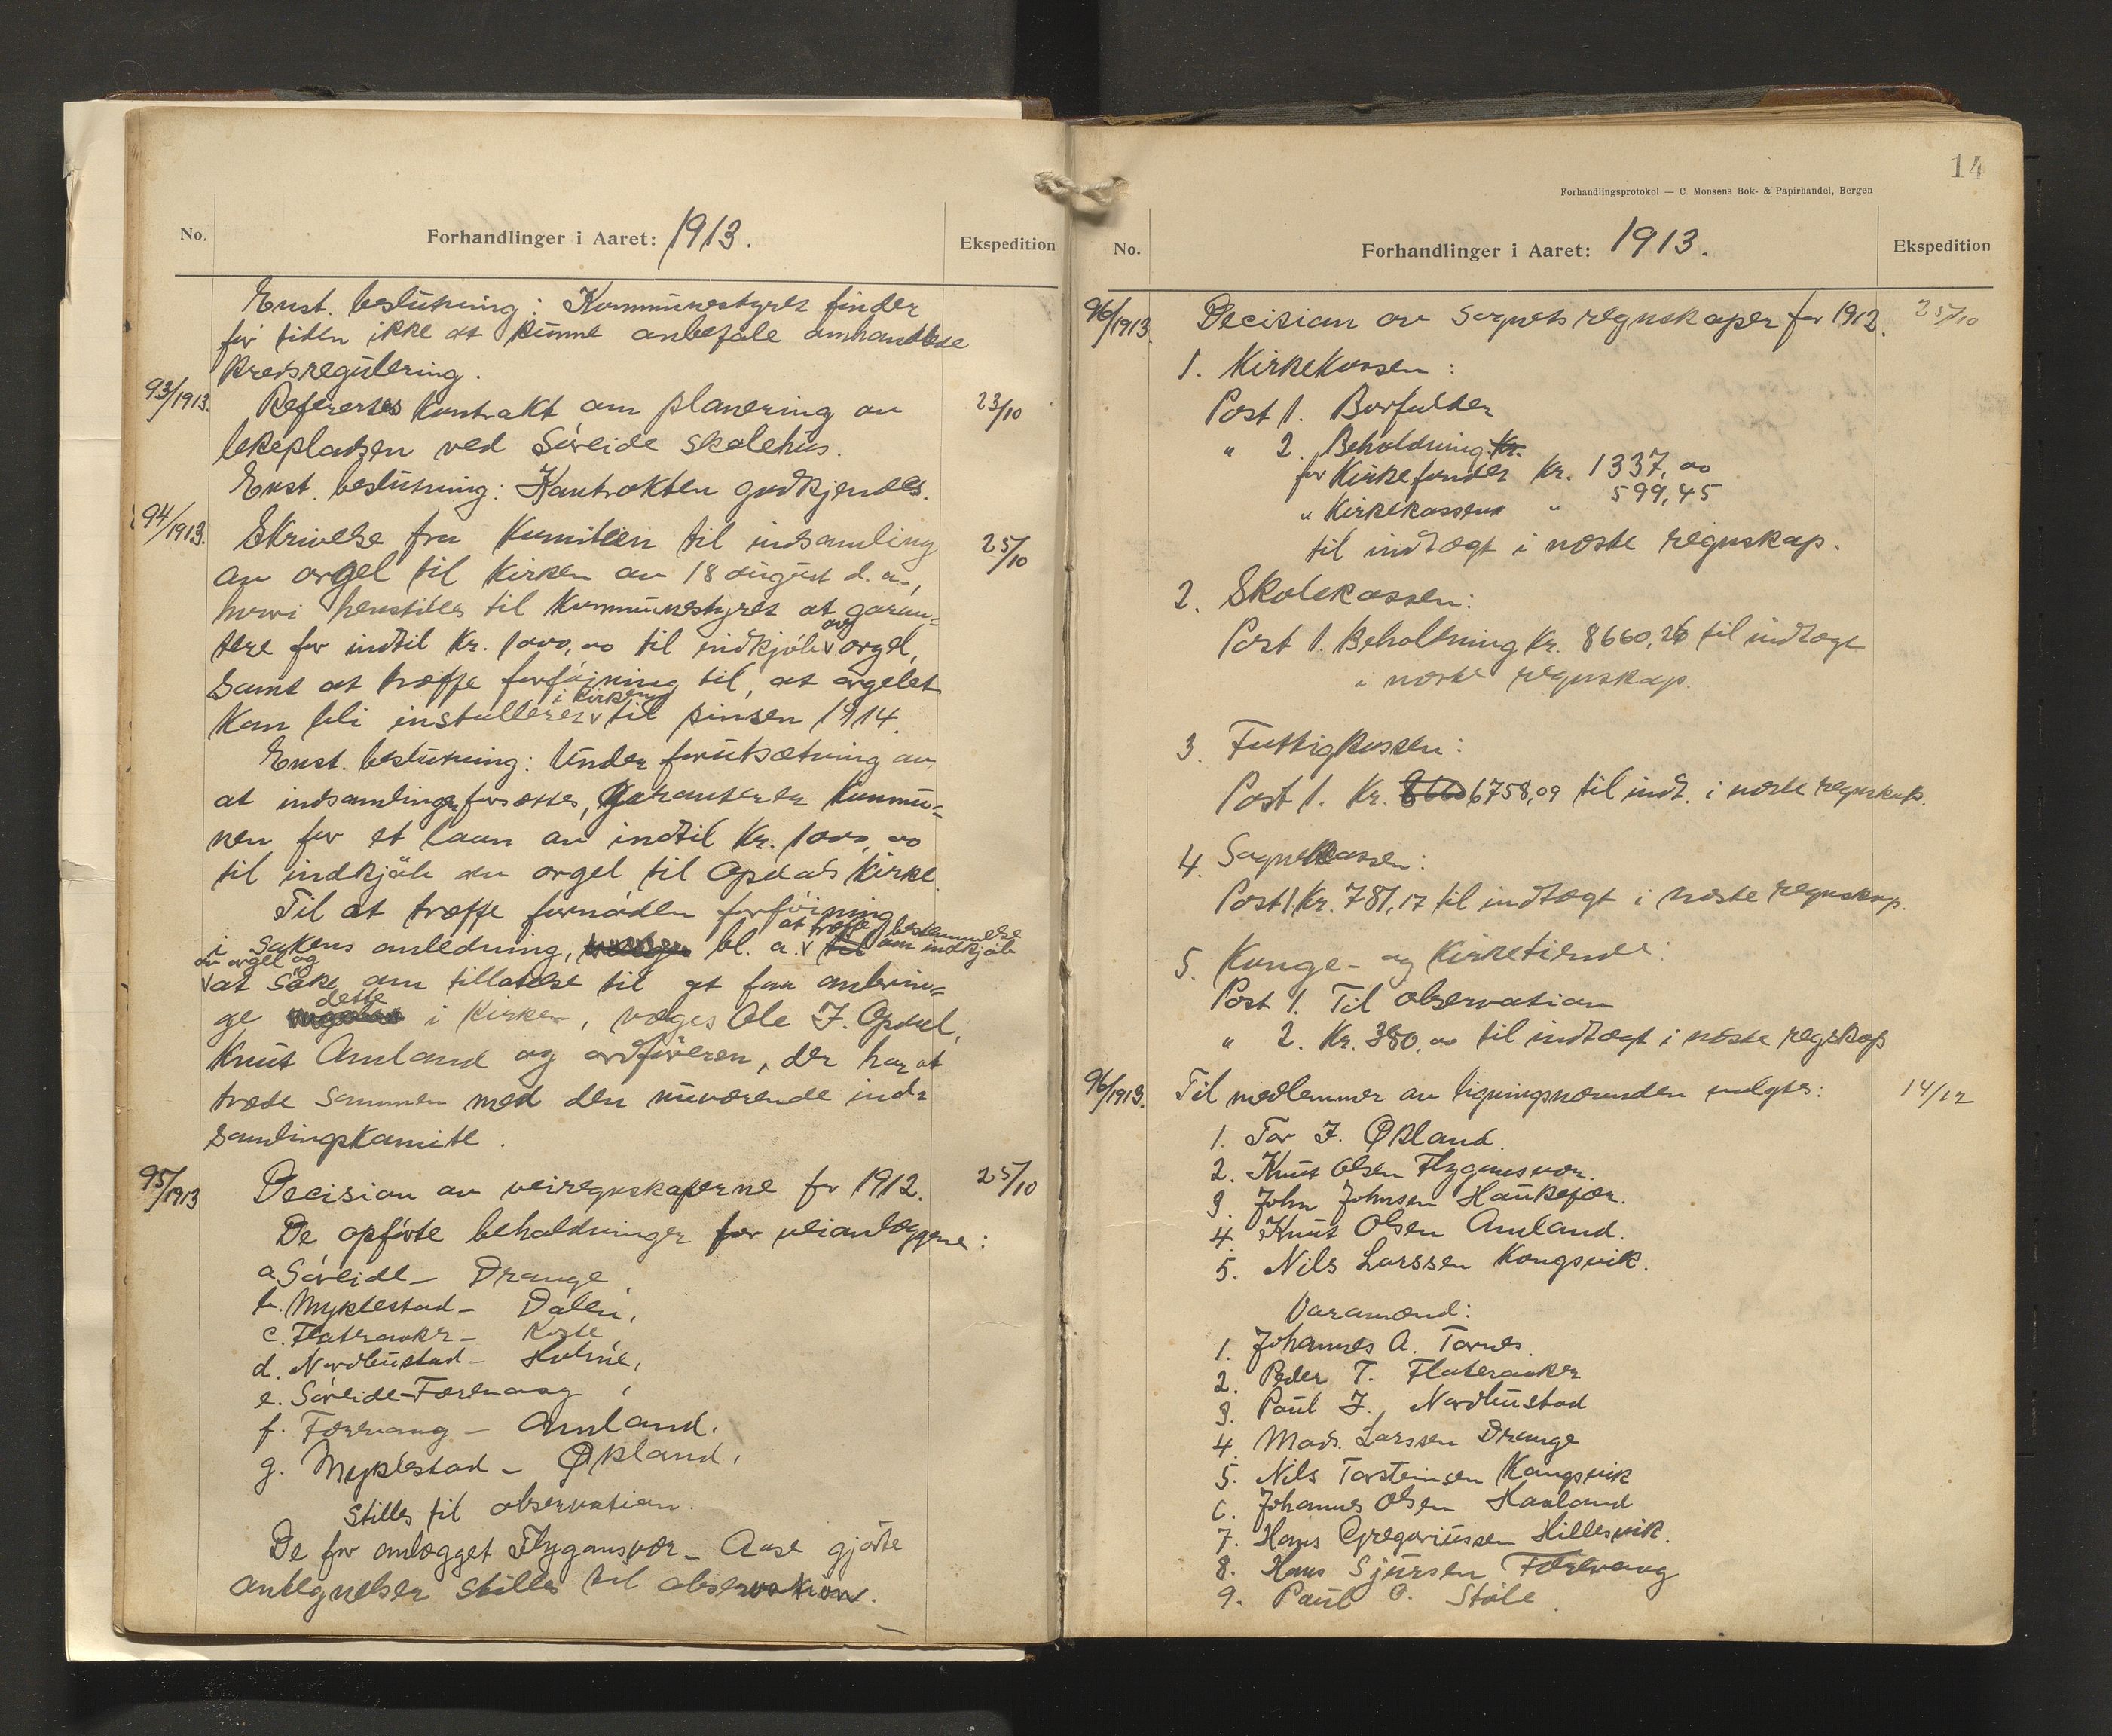 No.
Forhandlinger i Aaret: 1913.
Ekspedition
Enst. beslutning: Kommunestyret finder
for tiden ikke at kunne anbefale omhandlede
kredsregulering.
93/1913. Refereres kontrakt om planering av 23/10
lekepladsen ved Søreide skolehus.
Enst. beslutning: Kontrakten godkjendes.
94/1913. Skrivelse fra komiteen til indsamling 25/10
av orgel til kirken av 18 august d. a.,
hvori henstilles til kommunestyret at garan=
tere for indtil kr. 1000,00 til indkjøb av orgel,
samt at træffe forføining til, at orgelet
kan bli installeret i kirken til pinsen 1914.
Enst. beslutning: Under forutsætning av,
at indsamlingen forsættes, garanterer kommu=
nen for et laan av indtil kr. 1000,00
til indkjøb av orgel til Opdals kirke.
Til at træffe fornøden forføining
i sakens anledning, bl. a. at træffe bestemmelse om indkjøb
av orgel og at søke om tillatelse til at faa anbrin=
ge dette i kirken, vælges Ole J. Opdal,
Knut Amland og ordføreren, der har at
træde sammen med den nuværende ind=
samlingskomite.
95/1913 Decision av veiregnskaperne for 1912. 25/10
De opførte beholdninger for veianlæggene:
a. Søreide - Drange
b. Myklestad - Dalen,
c. Flateraaker -
d. Nordhustad - Holme,
e. Søreide-Færevaag,
f. Færevaag - Amland,
g. Myklestad - Økland,
stilles til observation.
De for anlægget Flygansvær - Aase gjorte
antegnelser stilles til observation.
14
Forhandlingsprotokol — C. Monsens Bok- & Papirhandel, Bergen
No.
Forhandlinger i Aaret: 1913.
Ekspedition
96/1913. Decision av sognets regnskaper for 1912. 25/10
1. Kirkekassen:
Post 1. Bortfalder
" 2. Beholdning kr.
for Kirkefondet kr. 1337,00
" Kirkekassen " 599,45
til indtægt i næste regnskap.
2. Skolekassen:
Post 1. Beholdning kr. 8660,26 til indtægt
i næste regnskap.
3. Fattigkassen:
Post 1. Kr. 6758,09 til indt. i næste regnskap.
4. Sognekassen:
Post 1. Kr. 781,17 til indtægt i næste regnskap.
5. Konge- og Kirketiende:
Post 1. Til observation
" 2. Kr. 380,00 til indtægt i næste regskap
96/1913. Til medlemmer av ligningsnævnden valgtes: 14/12
1. Tor J. Økland.
2. Knut Olsen Flygansvær.
3. John Johnsen Haukefær.
4. Knut Olsen Amland.
5. Nils Larssen Kongsvik.
Varamænd:
1. Johannes A. Tornes.
2. Peder T. Flateraaker
3. Paul J. Nordhustad
4. Mads Larssen Drange
5. Nils Torsteinsen Kongsvik
6. Johannes Olsen Haaland
7. Hans Gregoriussen Hillesvik.
8. Hans Sjursen Færevaag
9. Paul O. Støle.